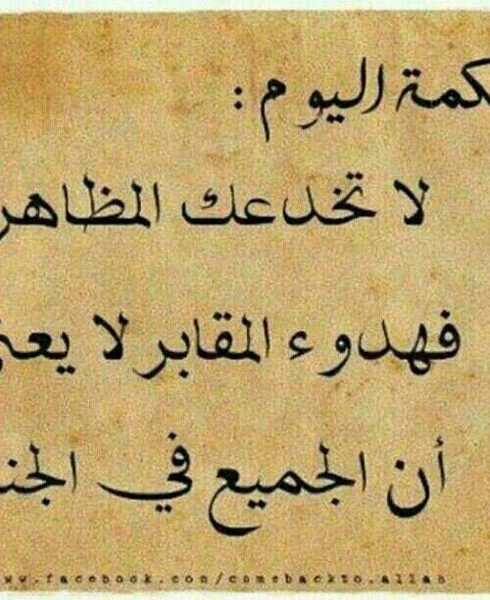 كمة اليوم :
لا تخدعك المظاهر
فهدوء المقابر لا يعني
أن الجميع في الجن
www.facebook.com/comebackto.allah